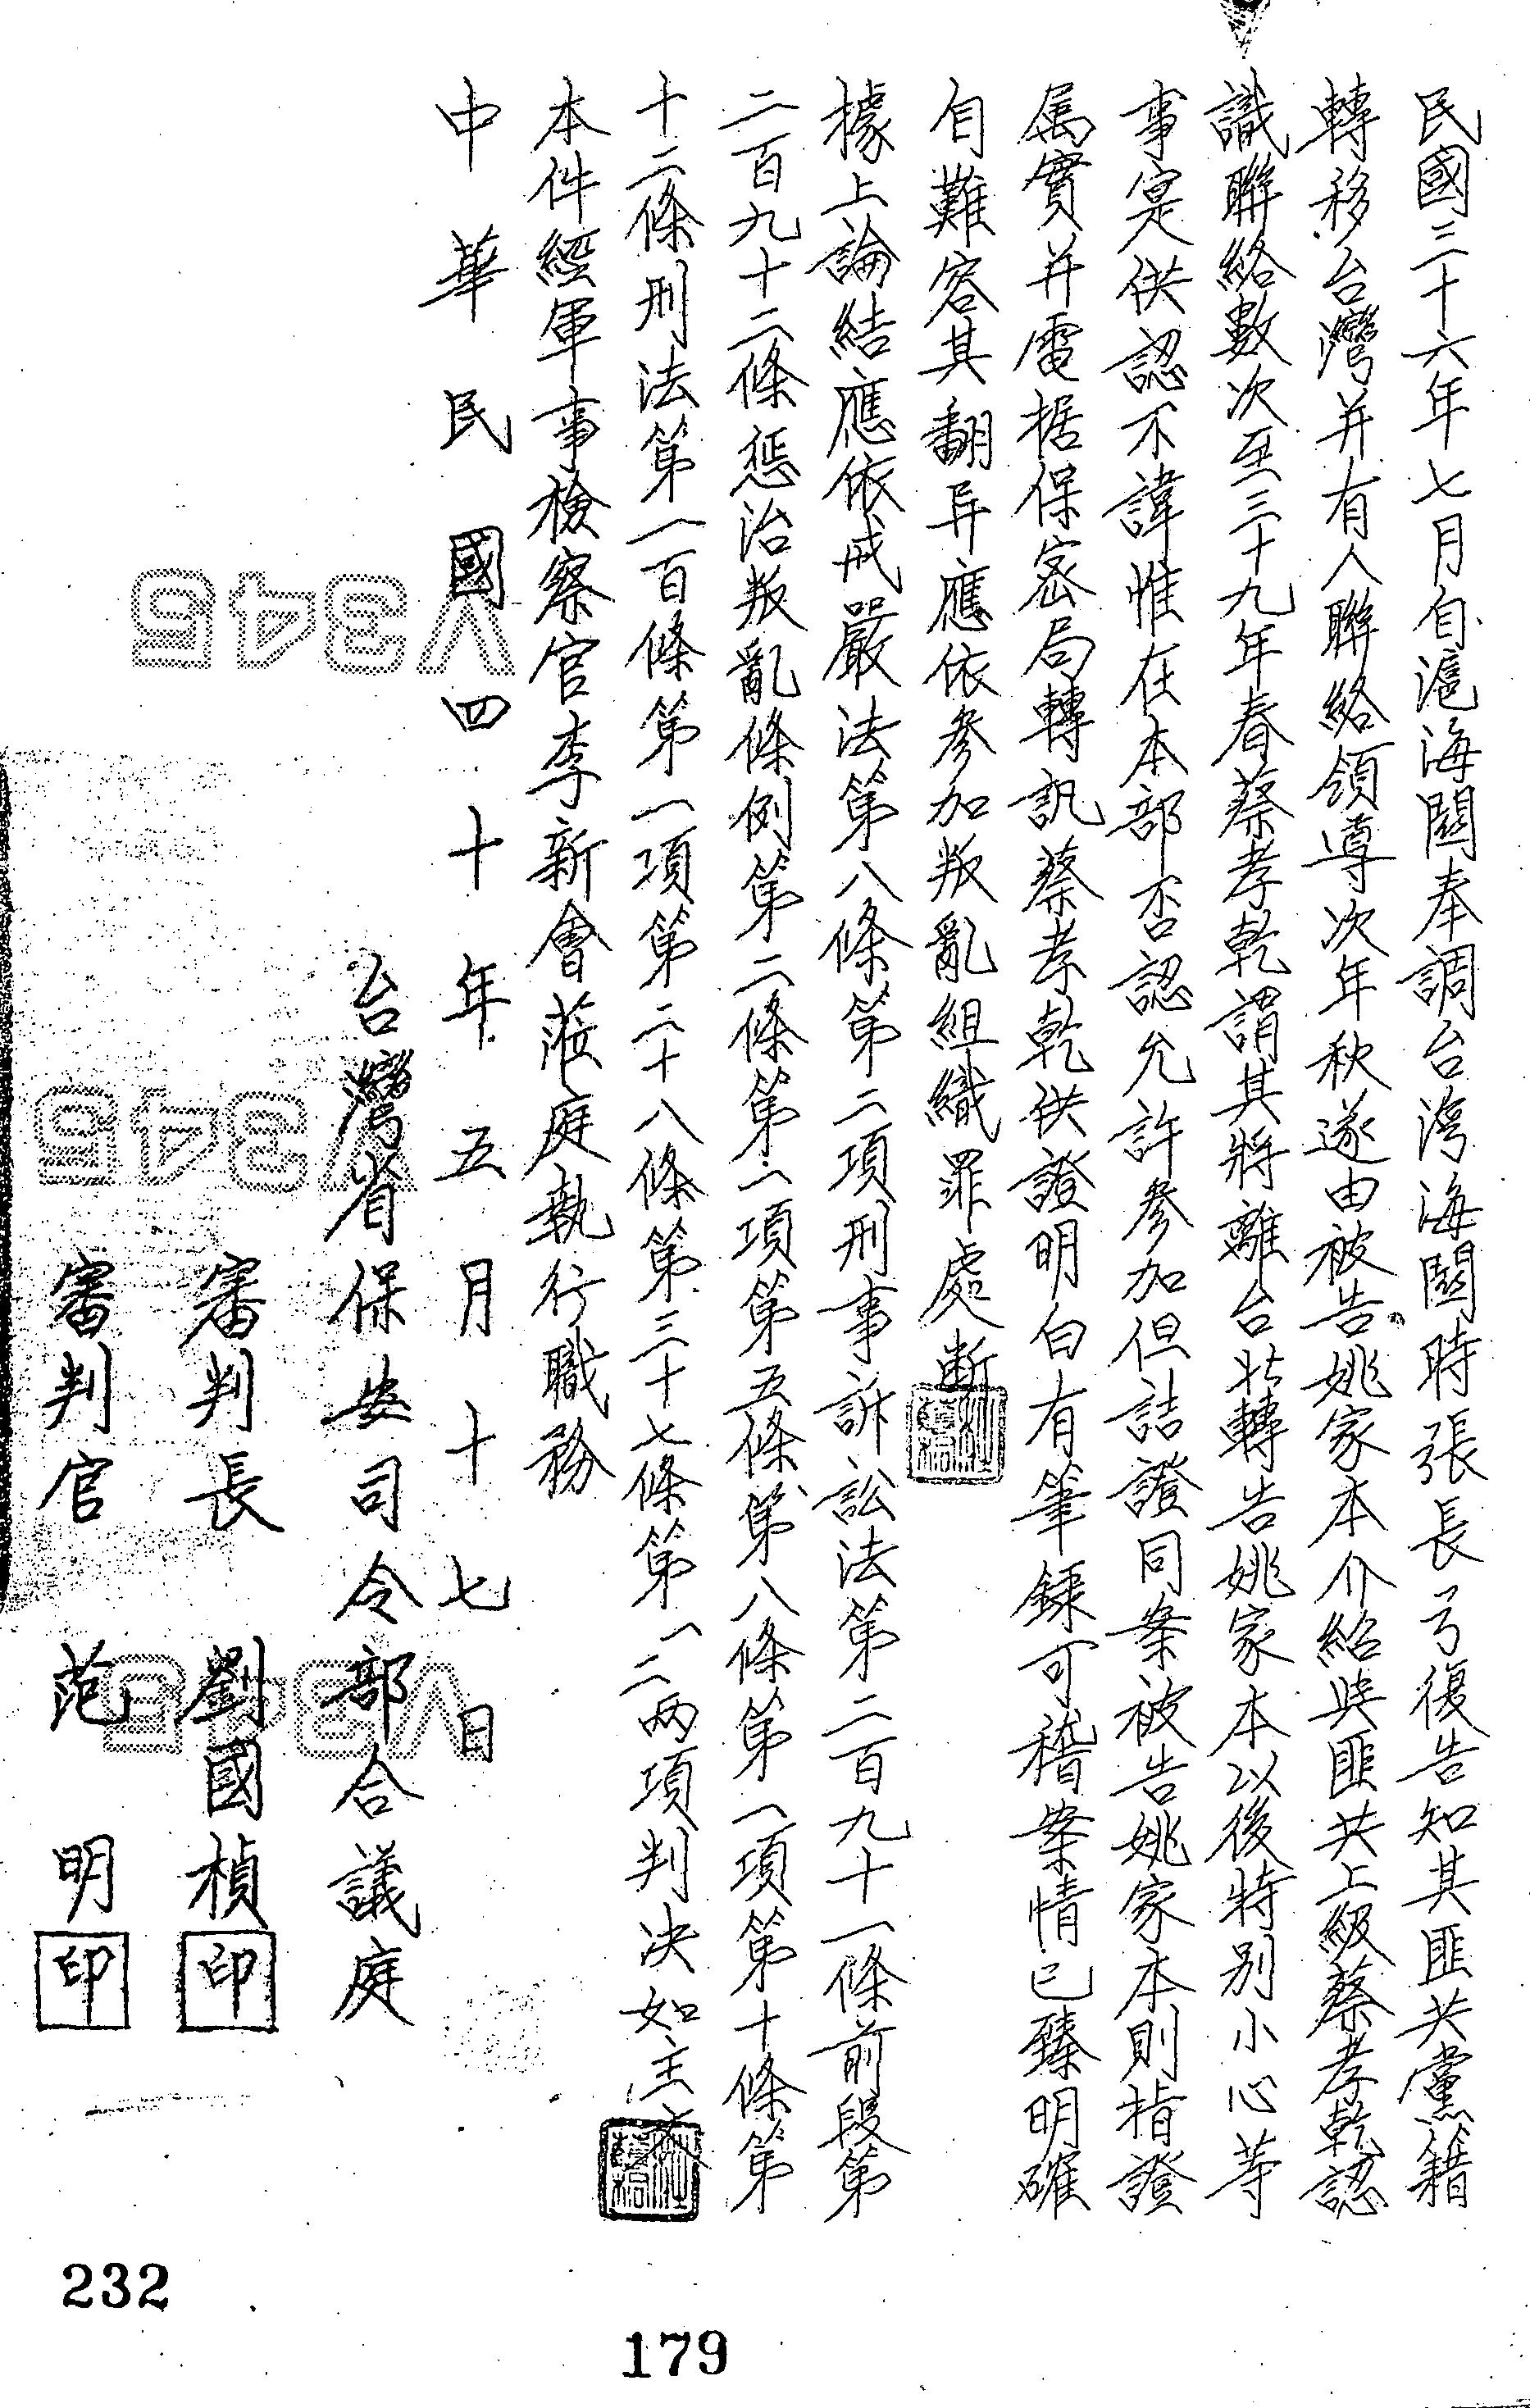 民國三十六年七月自滬海關奉調台湾海關時張長弓復告知其匪共黨籍
轉移台灣并有人聯絡領導次年秋遂由被告姚家本介紹與匪共上級蔡孝乾認
識聯絡數次至三十九年春蔡孝乾謂其將離台北轉告姚家本以後特别小心等
事寔供認不諱惟在本部否認允許參加但詰證同案被告姚家本則指證
属實并電据保密局轉訊蔡孝乾供證明白有筆録可稽案情已臻明確
自難容其翻异應依參加叛亂組織罪處断
據上論結應依戒嚴法第八條第二項刑事訴訟法第二百九十一條前段第
二百九十二條惩治叛亂條例第二條第一項第五條第八條第一項第十條第
十二條刑法第一百條第一項第二十八條第三十七條第一二兩項判决如主文
本件經軍事檢察官李新會蒞庭執行職務
中華民國四十年五月十七日
台灣省保安司令部合議庭
審判長 劉國楨 印
審判官 范明 印
V345
V345
V345
232
179